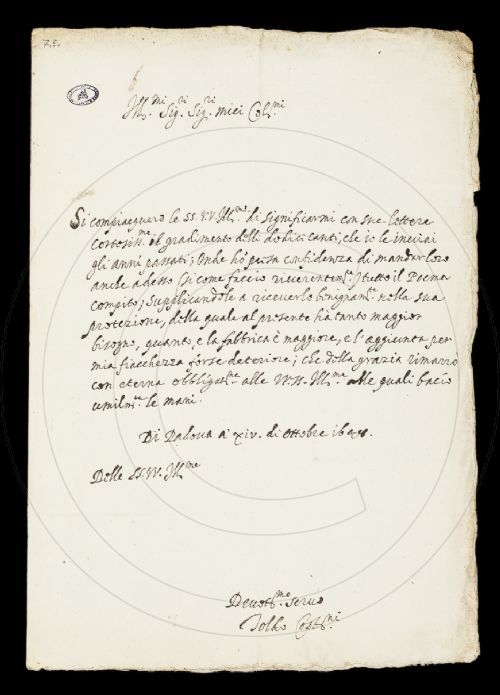 7.5.
Ill.mi Sig.ri Sig.ri miei Col.mi
Si compiacquero le SS.VV. Ill.me di significarmi con sue lettere
cortesiss.me il gradimento delli dodici canti, che io le inviai
gli anni passati; Onde hò presa confidenza di mandar loro
anche adesso (si come faccio riverentem.te) tutto il Poema
compito, supplicandole a riceverlo benignam.te nella sua
protezione, della quale al presente ha tanto maggior
bisogno, quanto, e la fabbrica è maggiore, e l'aggiunta per
mia fiacchezza forse deteriore; che della grazia rimarrò
con eterna obbligat.ne alle VV.SS. Ill.me alle quali bacio
umilm.te le mani.
Di Padova a' xiv. di ottobre
Delle SS.VV. Ill.me
Devotiss.mo servo